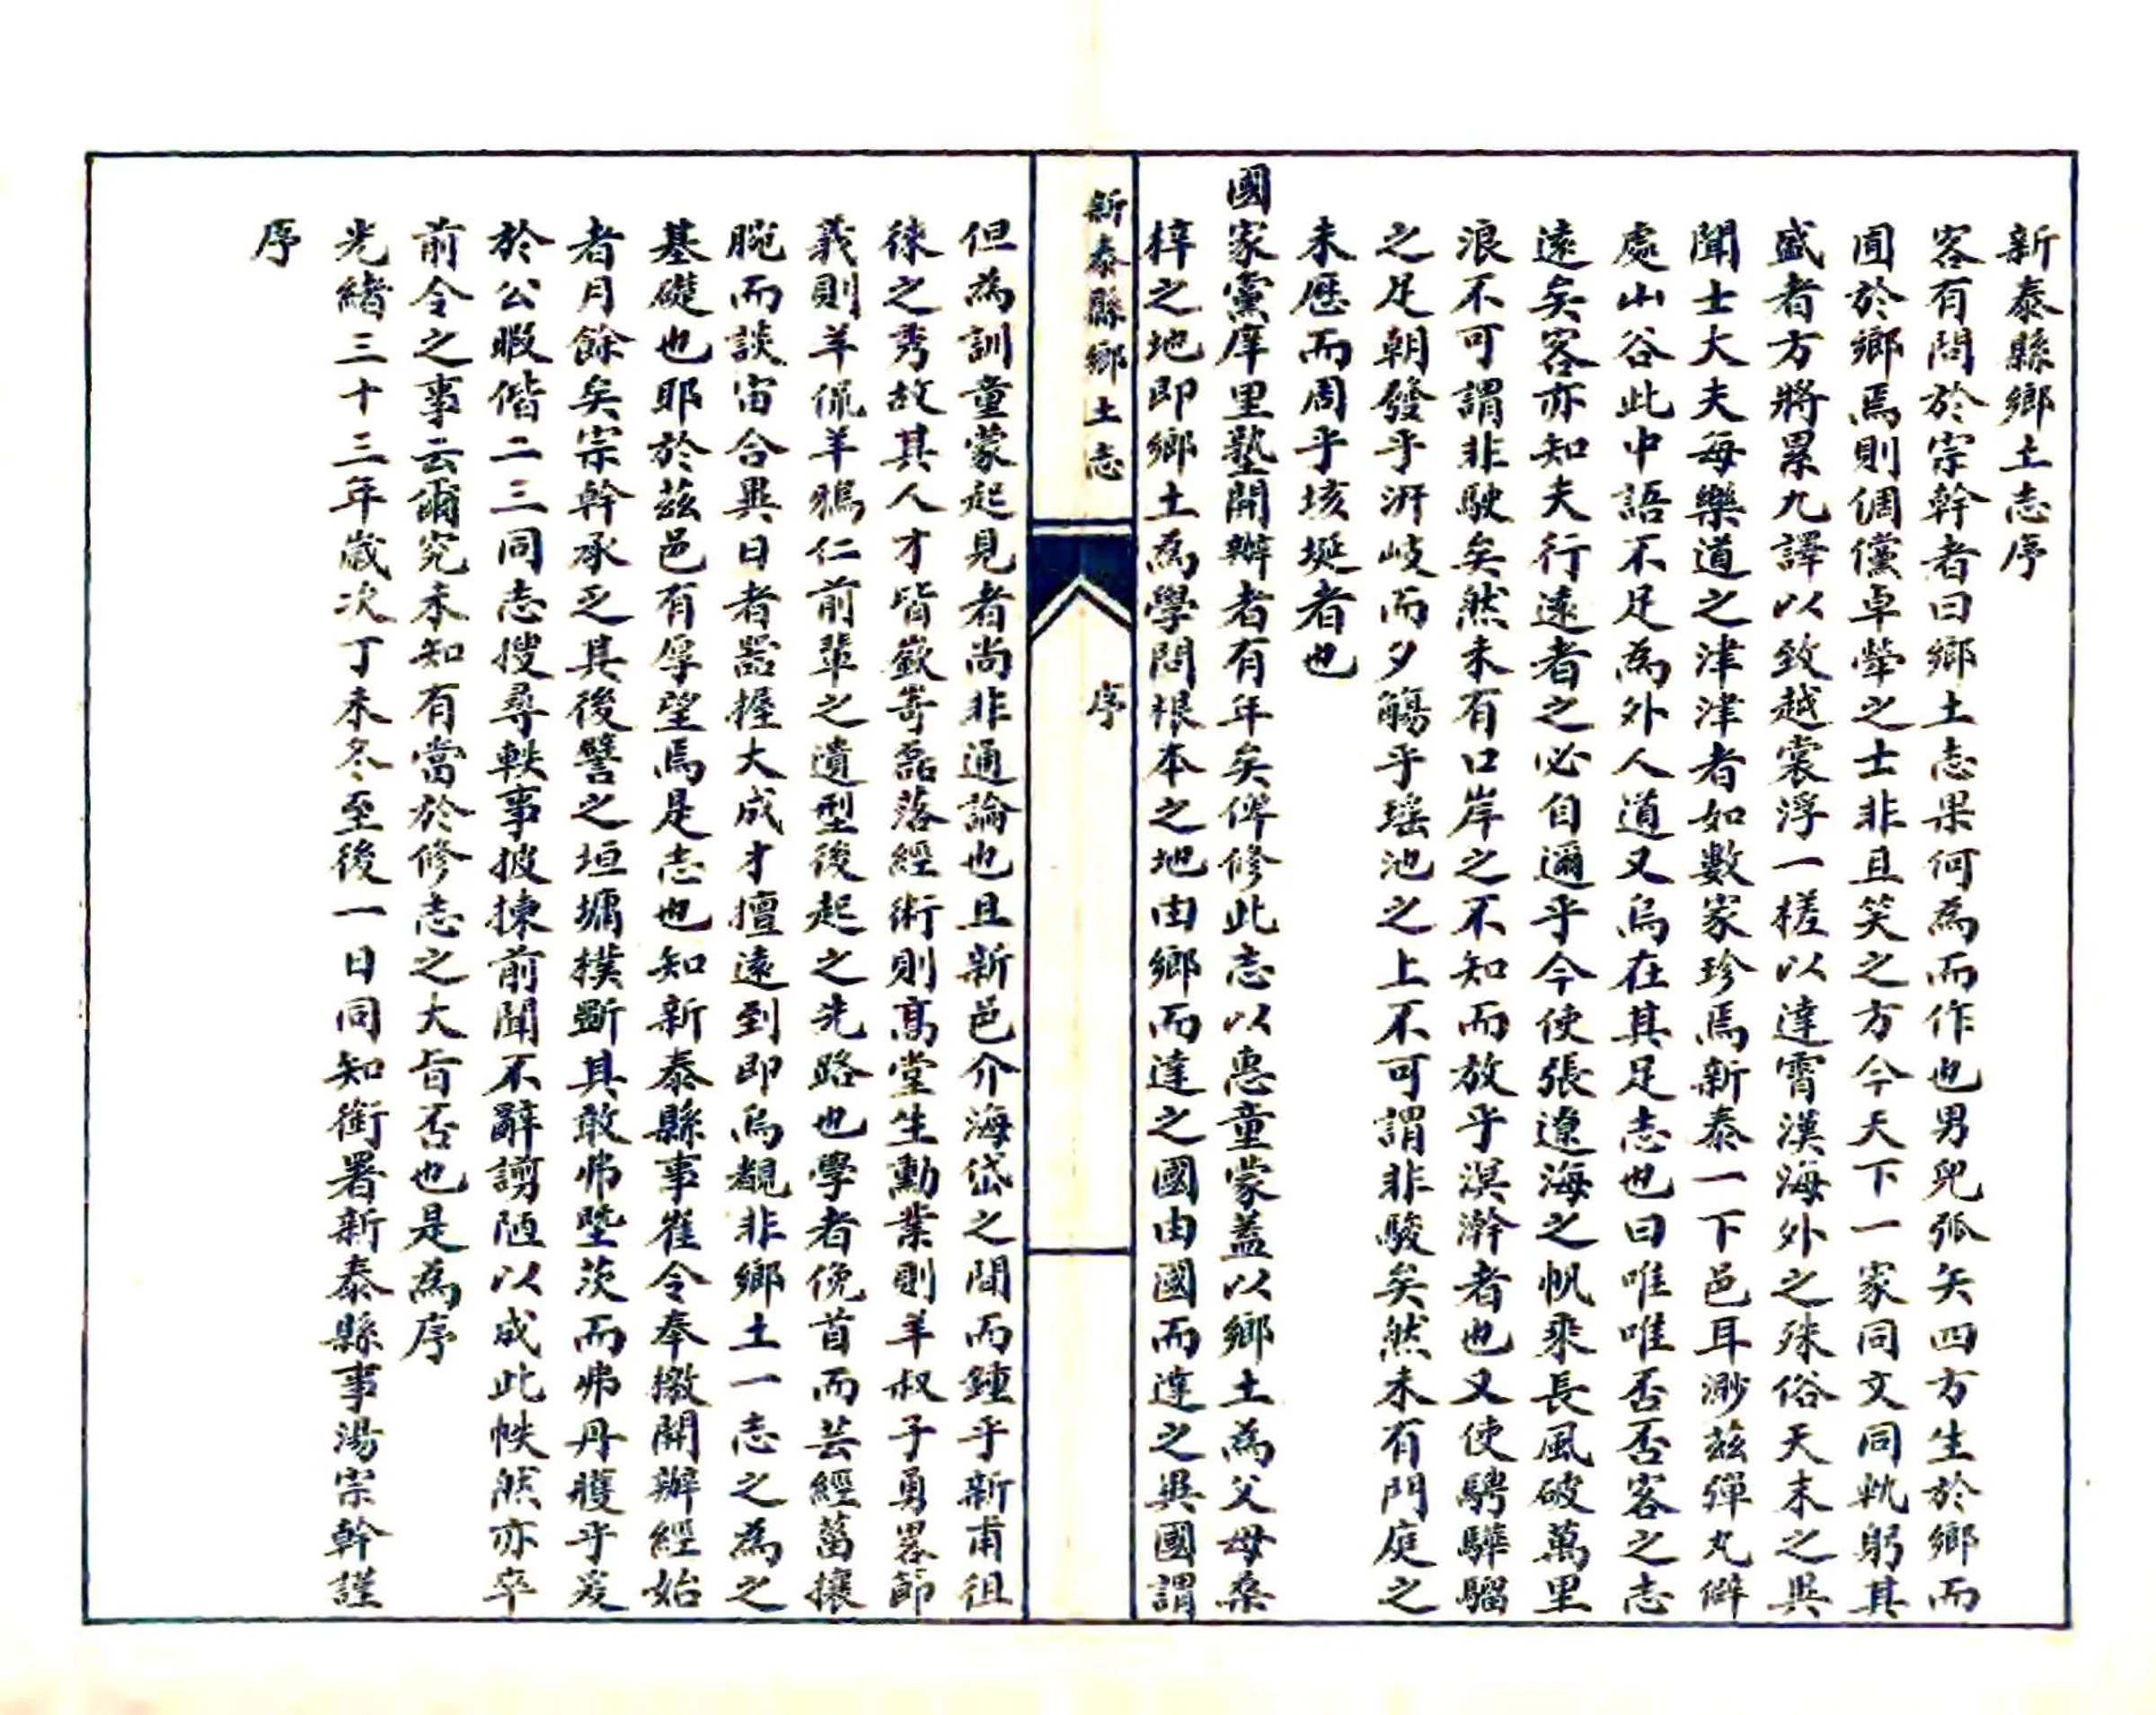 新泰縣鄉土志序
客有問於宗幹者曰鄉土志果何為而作也男兒弧矢四方生於鄉而
囿於鄉焉則倜儻卓犖之士非且笑之方今天下一家同文同軌躬其
盛者方將累九譯以致越裳浮一槎以達霄漢海外之殊俗天末之異
聞士大夫每樂道之津津者如數家珍焉新泰一下邑耳渺茲彈丸僻
處山谷此中語不足為外人道又烏在其足志也曰唯唯否否客之志
遠矣客亦知夫行遠者之必自邇乎今使張遼海之帆乘長風破萬里
浪不可謂非駛矣然未有口岸之不知而放乎溟澥者也又使騁驊騮
之足朝發乎汧岐而夕觴乎瑤池之上不可謂非駿矣然未有門庭之
未歷而周乎垓埏者也
國家黨庠里塾開辦者有年矣俾修此志以惠童蒙蓋以鄉土為父母桑
梓之地即鄉土為學問根本之地由鄉而達之國由國而達之異國謂
新泰縣鄉土志
序
但為訓童蒙起見者尚非通論也且新邑介海岱之間而鍾乎新甫徂
徠之秀故其人才皆嶔崎磊落經術則高堂生勳業則羊叔子勇畧節
義則羊侃羊鴉仁前輩之遺型後起之先路也學者俛首而芸經菑攘
腕而談宙合異日者噐握大成才擅遠到即烏覩非鄉土一志之為之
基礎也耶於茲邑有厚望焉是志也知新泰縣事崔令奉檄開辦經始
者月餘矣宗幹承乏其後譬之垣墉樸斲其敢弗塈茨而弗丹雘乎爰
於公暇偕二三同志搜尋軼事披揀前聞不辭謭陋以成此帙然亦卒
前令之事云爾究未知有當於修志之大旨否也是為序
光緒三十三年歲次丁未冬至後一日同知銜署新泰縣事湯宗幹謹
序